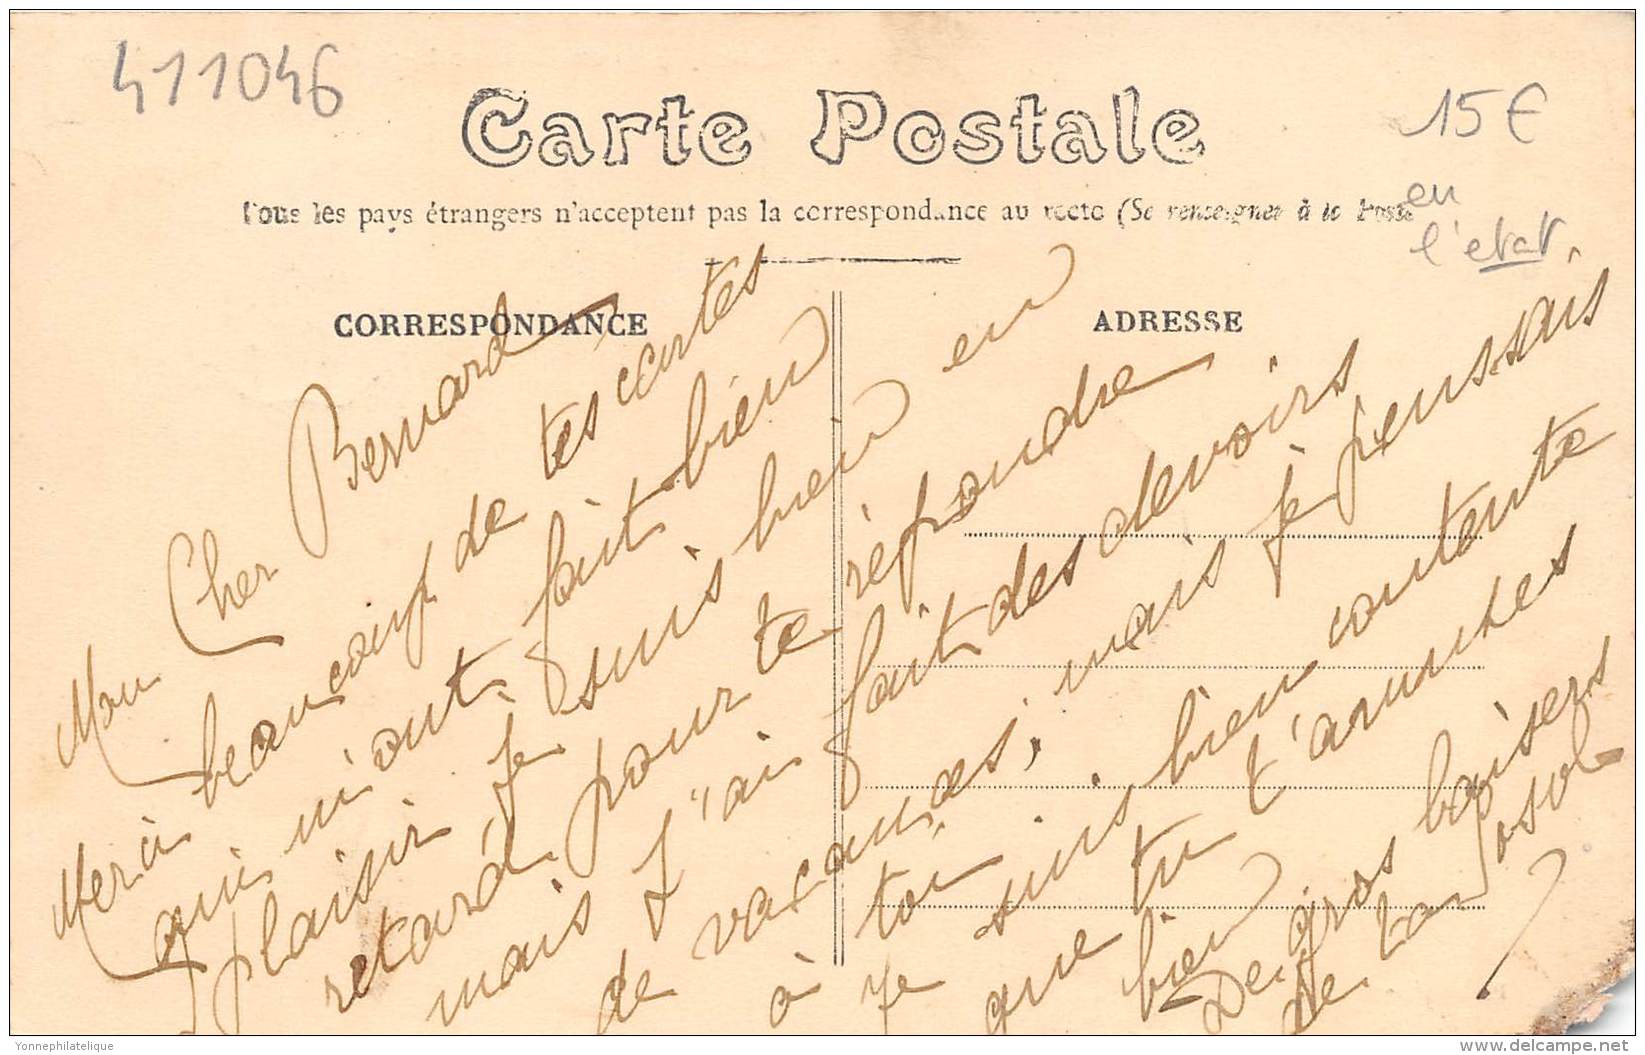 411046
Carte Postale
15€
en
l'etat
Tous les pays étrangers n'acceptent pas la correspondance au recto (Se renseigner à la Poste
CORRESPONDANCE
ADRESSE
Mon Cher Bernard
Merci beaucoup de tes cartes
qui m'ont fait bien
plaisir je suis bien en
retard pour te répondre
mais j'ai fait des devoirs
de vacances, mais je penssais
à toi
je suis bien contente
que tu t'amuses
bien
De gros baisers
de ta
Yonnephilatelique
www.delcampe.net